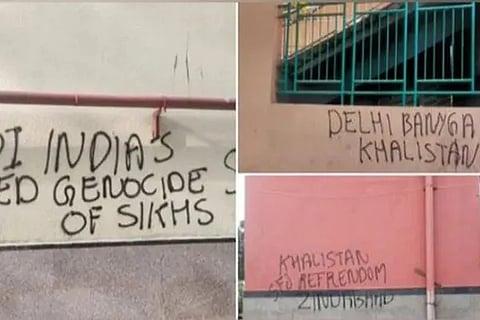 DI INDIA'S
ED GENOCIDE S
OF SIKHS
DELHI BANYGA
KHALISTAN
KHALISTAN
REFRENDOM
ZINDABAD